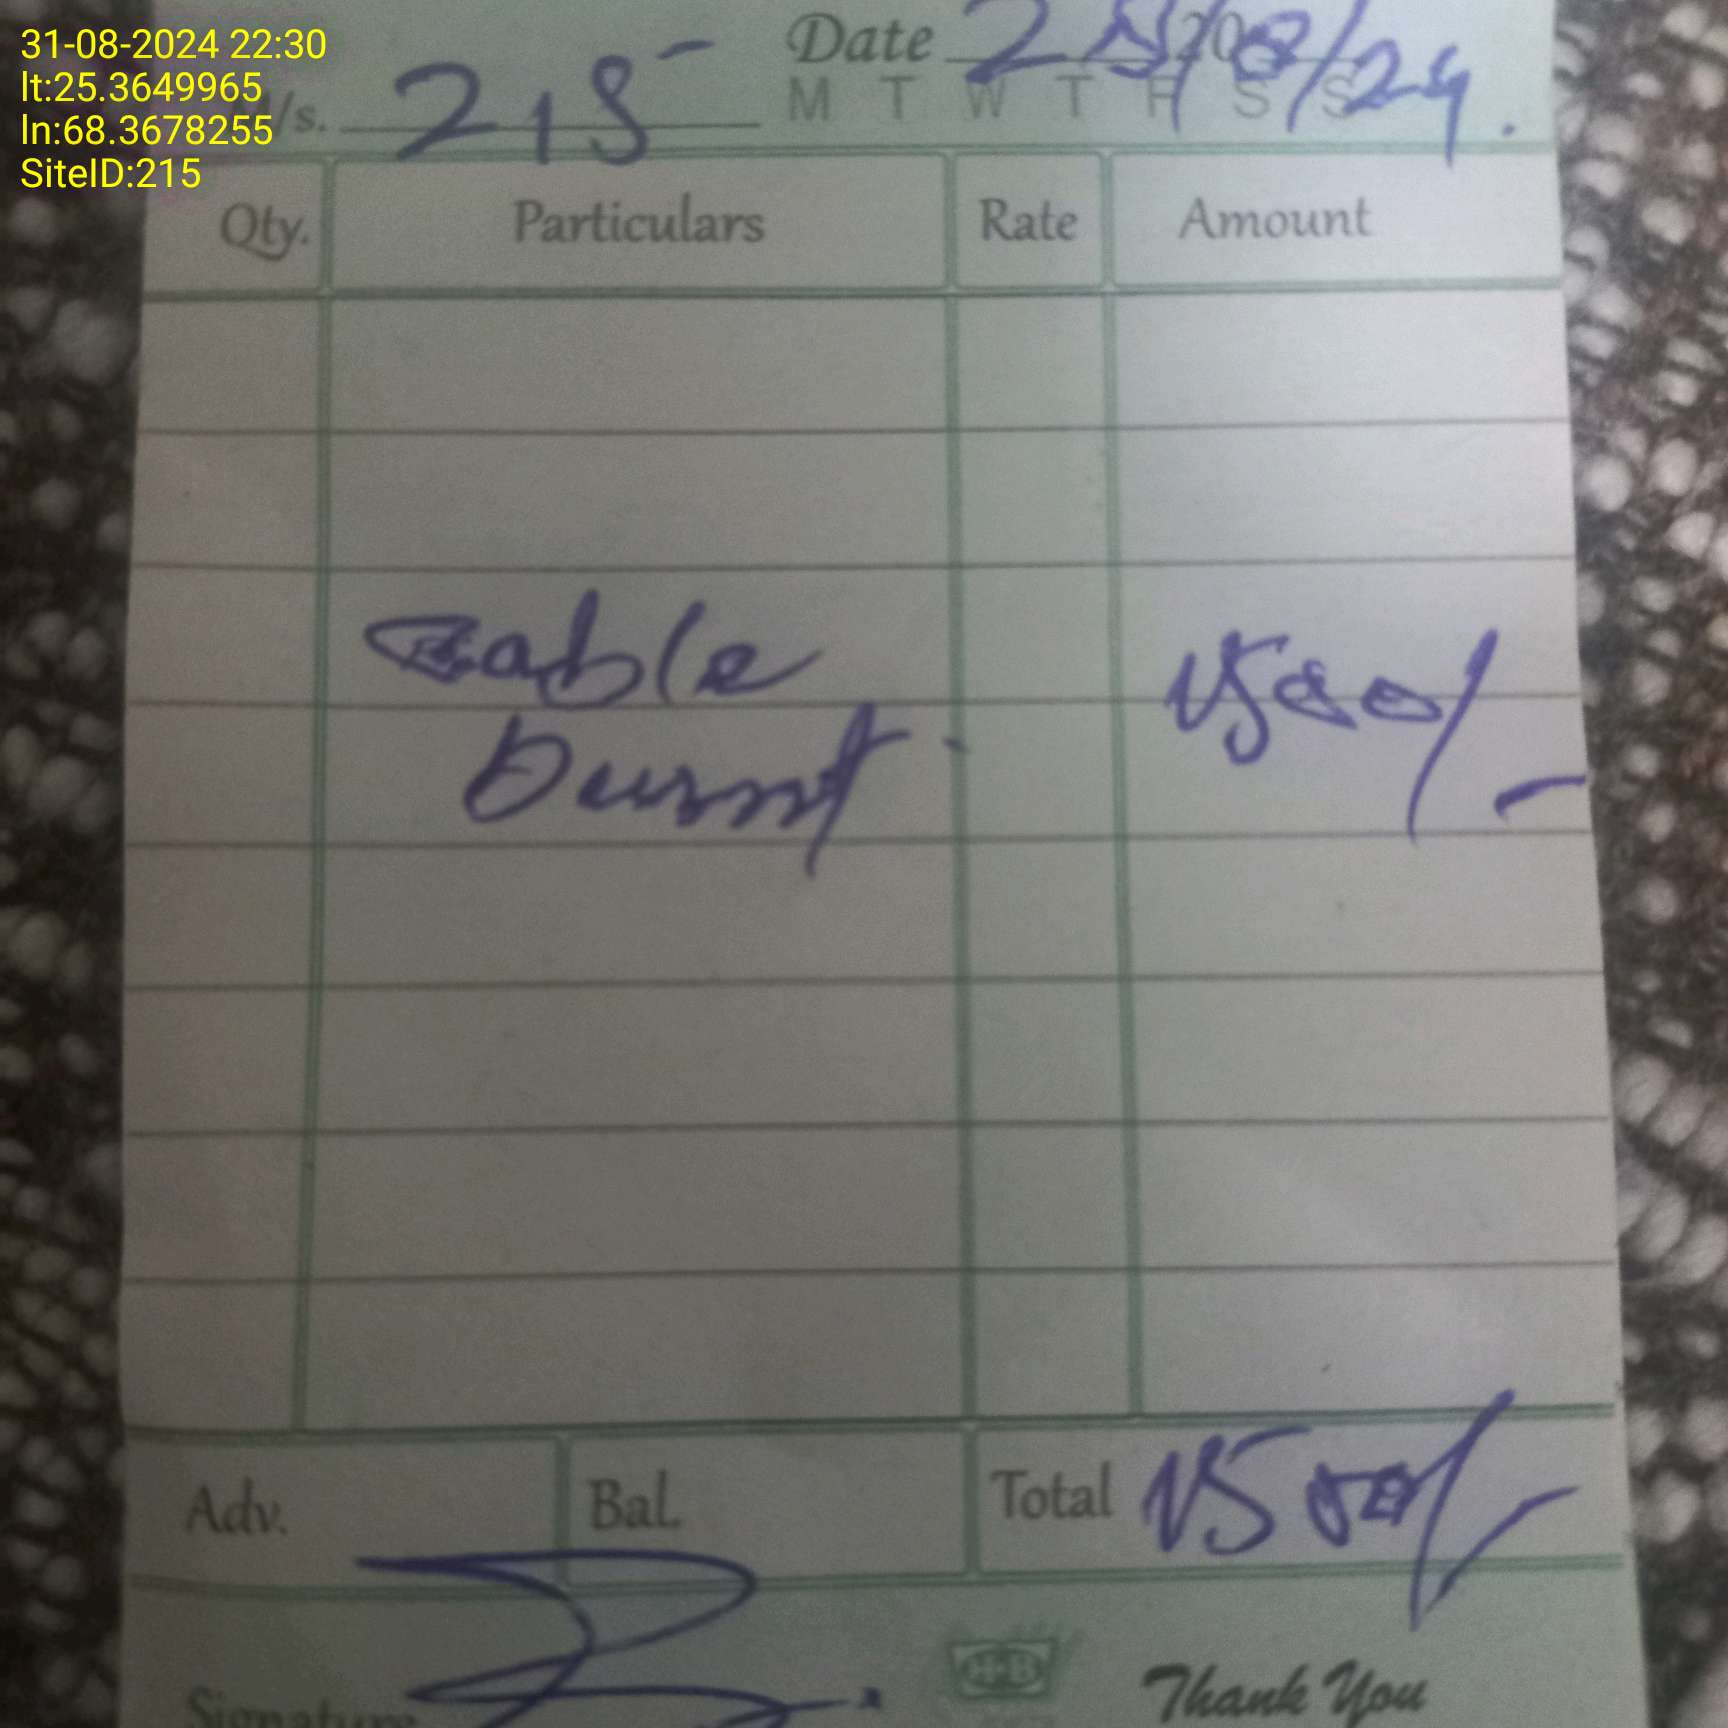 31-08-2024 22:30
lt:25.3649965
ln:68.3678255
SiteID:215
Date 25/8/24.
/s. 215
M T W T F S S
Qty. Particulars Rate Amount
Cable 1500/-
Burnt
Adv. Bal. Total 1500/-
Signature
H-B
Thank You